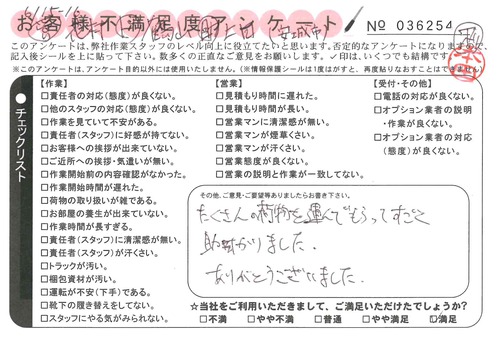 6/15-16
お客様不満足度アンケート
No 036254
このアンケートは、弊社作業スタッフのレベル向上に役立てたいと思います。否定的なアンケートになりますので、
記入後シールを上に貼って下さい。数多くの正直なご意見をお願いします。✓印は、いくつでも結構です。
※このアンケートは、アンケート目的以外には使用いたしません。(※情報保護シールは1度はがすと、再度貼りなおすことはできません。)
チェックリスト
【作業】
□責任者の対応(態度)が良くない。
□他のスタッフの対応(態度)が良くない。
□作業を見ていて不安がある。
□責任者(スタッフ)に好感が持てない。
□お客様への挨拶が出来ていない。
□ご近所への挨拶・気遣いが無い。
□作業開始前の内容確認がなかった。
□作業開始時間が遅れた。
□荷物の取り扱いが雑である。
□お部屋の養生が出来ていない。
□作業時間が長すぎる。
□責任者(スタッフ)に清潔感が無い。
□責任者(スタッフ)が汗くさい。
□トラックが汚い。
□梱包資材が汚い。
□運転が不安(下手)である。
□靴下の履き替えをしてない。
□スタッフにやる気がみられない。
【営業】
□見積もり時間に遅れた。
□見積もり時間が長い。
□営業マンに清潔感が無い。
□営業マンが煙草くさい。
□営業マンが汗くさい。
□営業態度が良くない。
□営業の説明と作業が一致してない。
【受付・その他】
□電話の対応が良くない。
□オプション業者の説明
・作業が良くない。
□オプション業者の対応
(態度)が良くない。
その他、ご意見・ご要望等ありましたらお書き下さい。
たくさんの荷物を運んでもらってすごく
助かりました.
ありがとうございました.
☆当社をご利用いただきまして、ご満足いただけたでしょうか?
□不満 □やや不満 □普通 □やや満足 ☑満足